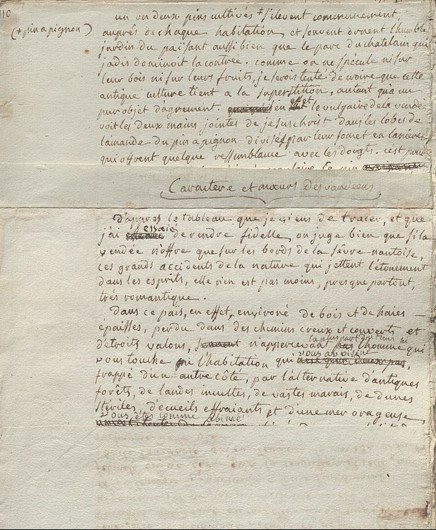 110
(* pin a pignon)
un ou deux pins cultivés * s'élevent communément
auprès de chaque habitation, et souvent ornent l'humble
jardin du paisant aussi bien que le parc du chatelain qui
jadis dominoit la contrée. comme on ne specule ni sur
leur bois ni sur leurs fruits, je serois tenté de croire que cette
antique culture tient a la superstition, autant qu'a un
pur objet d'agrement. en effet le vulgaire de la vendée
voit les deux mains jointes de jesus christ dans les lobes de
l'amande du pin a pignon divisés par leur somet en lanieres
qui offrent quelque ressemblance avec les doigts. c'est par
Caractere et mœurs des vandeens
D'apres le tableau que je viens de tracer, et que
j'ai essaié de rendre fidelle, on juge bien que si la
vendée n'offre que sur les bords de la sèvre nantoise,
ces grands accidents de la nature qui jettent l'etonement
dans les esprits, elle n'en est pas moins, presque partout,
très romantique.
Dans ce païs, en effet, environé de bois et de haies
epaisses, perdu dans des chemins creux et couverts et
detroits valons, n'appercevant la plus part du tems ni l'homme qui
vous touche ni l'habitation qui vous avoisine
frappé d'un autre côté, par l'alternative d'antiques
forêts, de landes incultes, de vastes marais, de dunes
steriles, d'ecueils effraiants et d'une mer orageuse
vous êtes comme